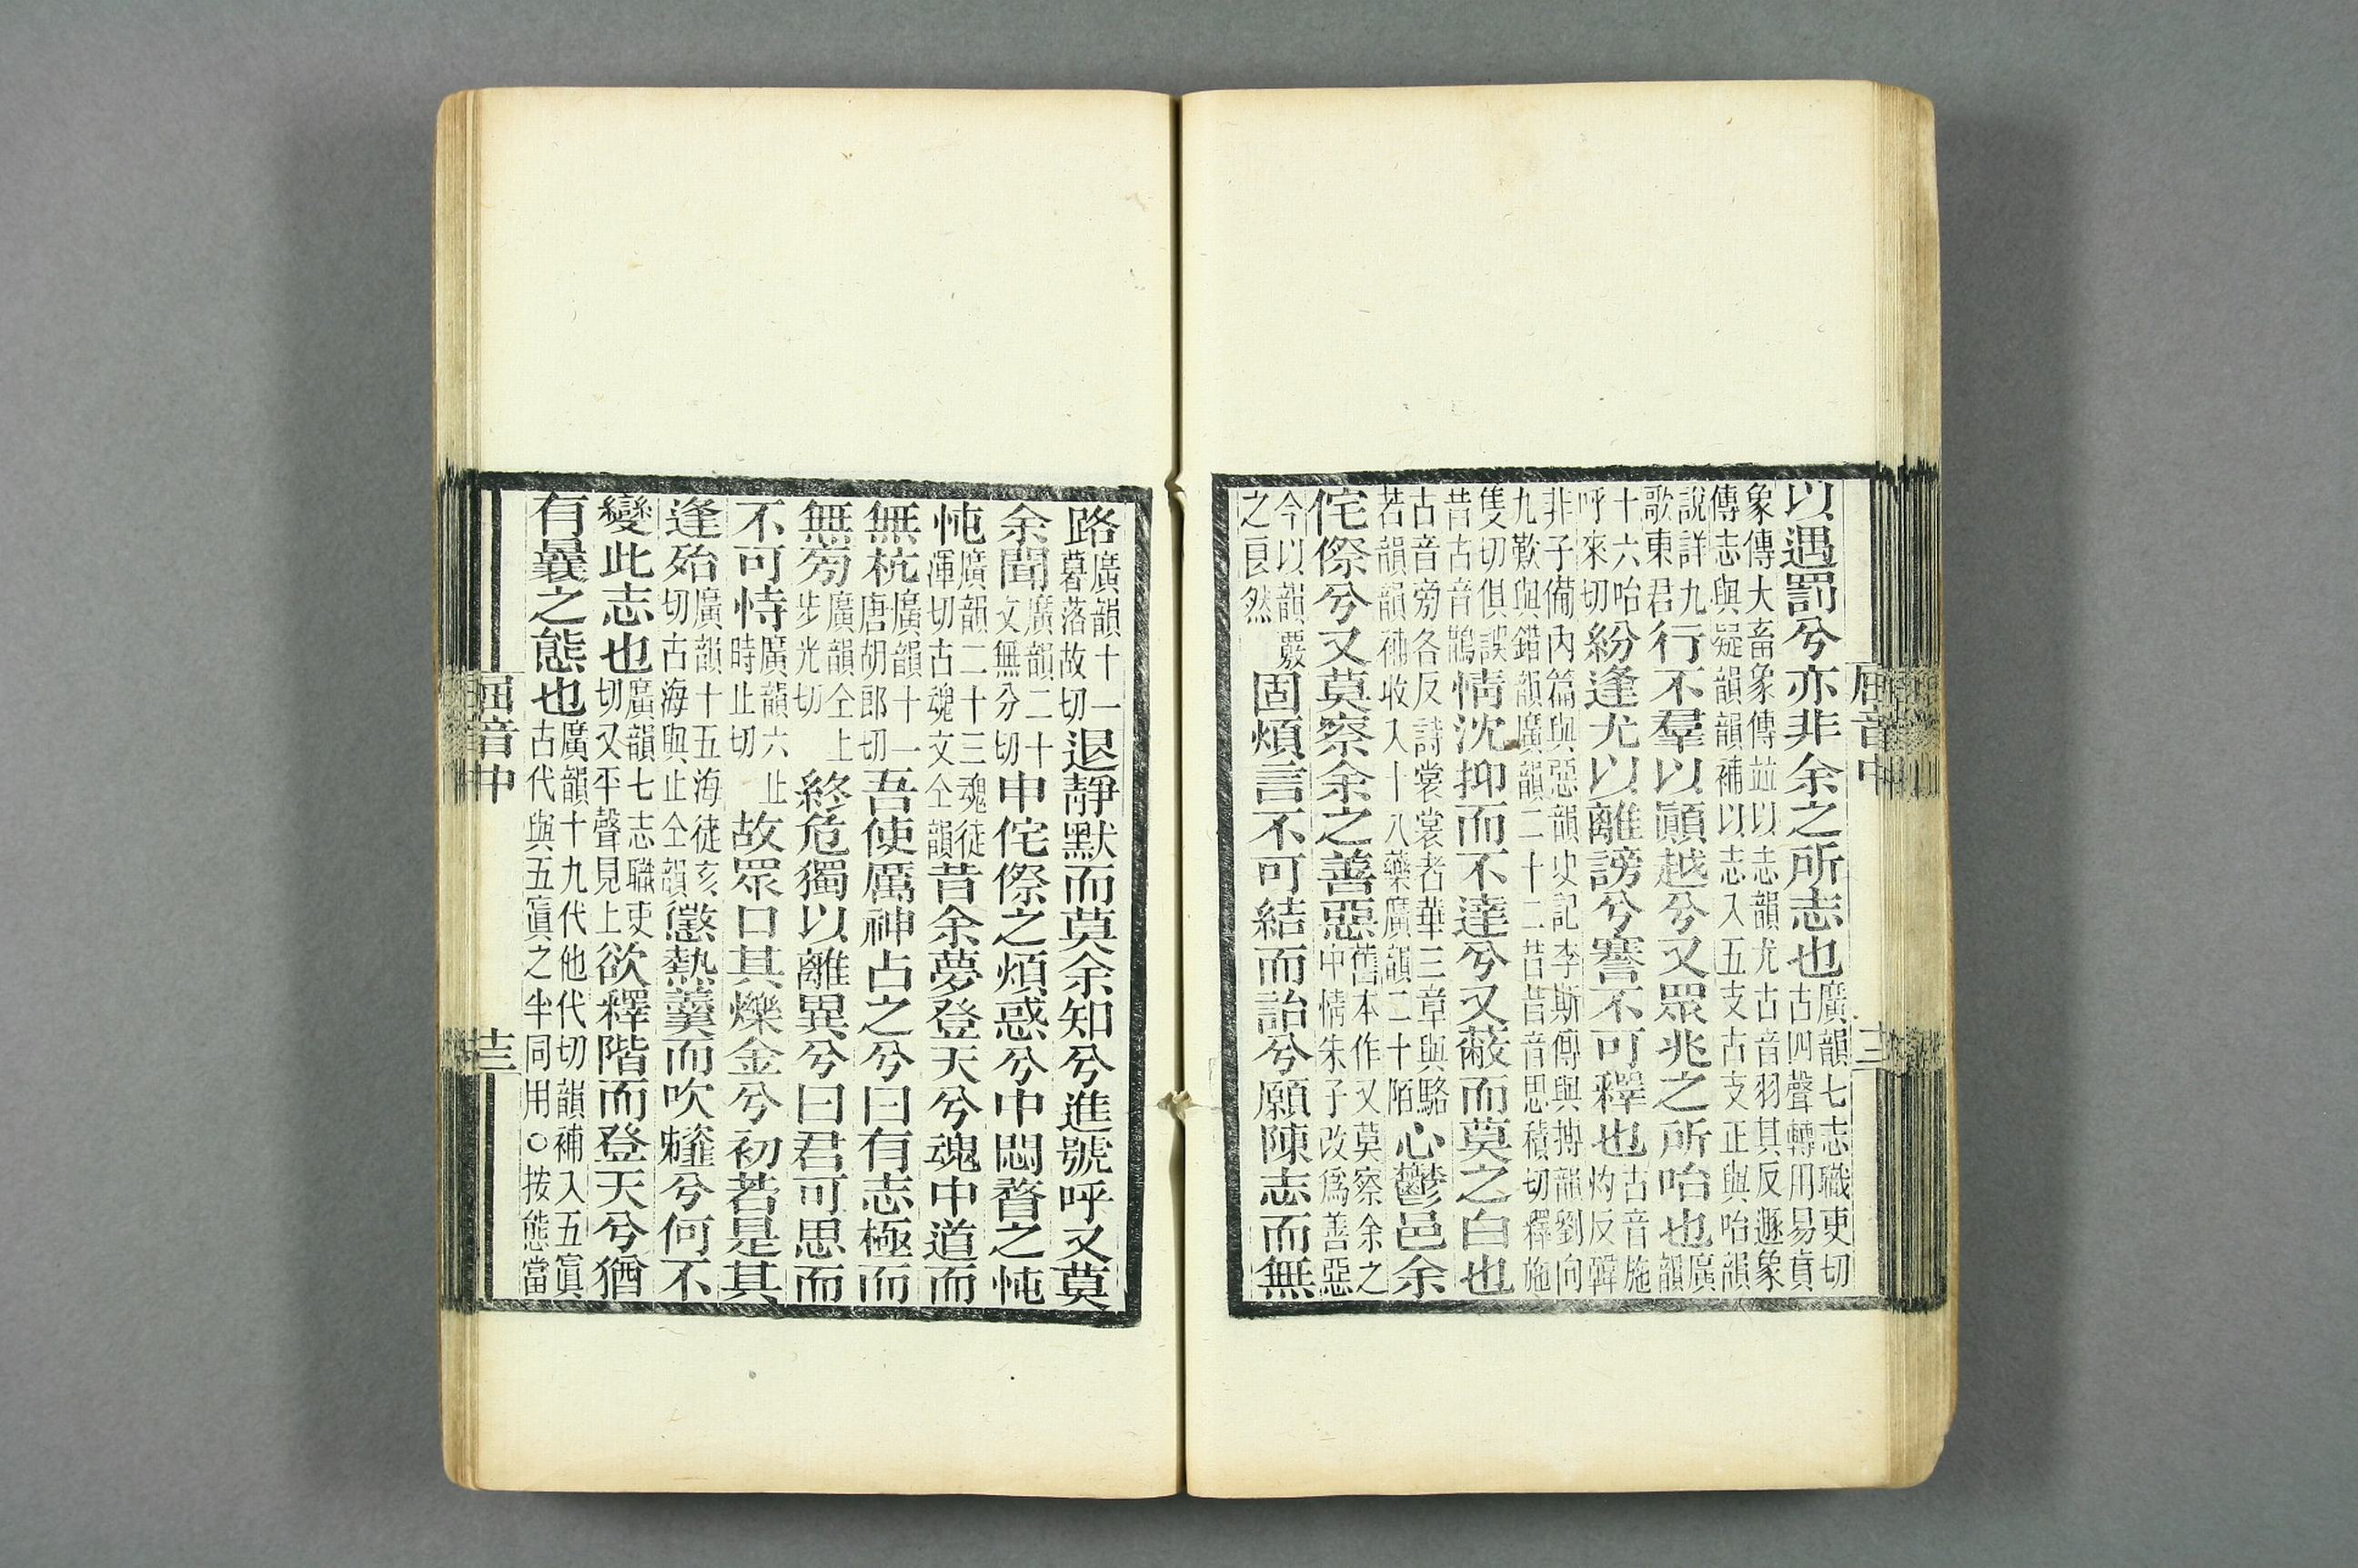 以遇罰兮亦非余之所志也廣韻七志職吏切古四聲轉用易賁
象傳大畜象傳並以志韻尤古音羽其反遯象傳志與疑韻韻補以志入五支古支正與咍韻
說詳九歌東君行不羣以顚越兮又眾兆之所咍也廣韻
十六咍呼來切紛逢尤以離謗兮謇不可釋也古音施灼反韓
非子備內篇與惡韻史記李斯傳與搏韻劉向九歎與錯韻廣韻二十二昔昔音思積切釋施
隻切俱誤昔古音鵲情沈抑而不達兮又蔽而莫之白也
古音旁各反詩裳裳者華三章與駱若韻韻補收入十八藥廣韻二十陌心鬱邑余
侘傺兮又莫察余之善惡舊本作又莫察余之中情朱子改爲善惡
今以韻覈之良然固煩言不可結而詒兮願陳志而無
路廣韻十一暮落故切退靜默而莫余知兮進號呼又莫
余聞廣韻二十文無分切申侘傺之煩惑兮中悶瞀之忳
忳廣韻二十三魂徒渾切古魂文仝韻昔余夢登天兮魂中道而
無杭廣韻十一唐胡郎切吾使厲神占之兮曰有志極而
無㫄廣韻仝上步光切終危獨以離異兮曰君可思而
不可恃廣韻六止時止切故眾口其爍金兮初若是其
逢殆廣韻十五海徒亥切古海與止仝韻懲熱羹而吹虀兮何不
變此志也廣韻七志職吏切又平聲見上欲釋階而登天兮猶
有曩之態也廣韻十九代他代切韻補入五寘古代與五寘之半同用○按態當
屈音中
十三